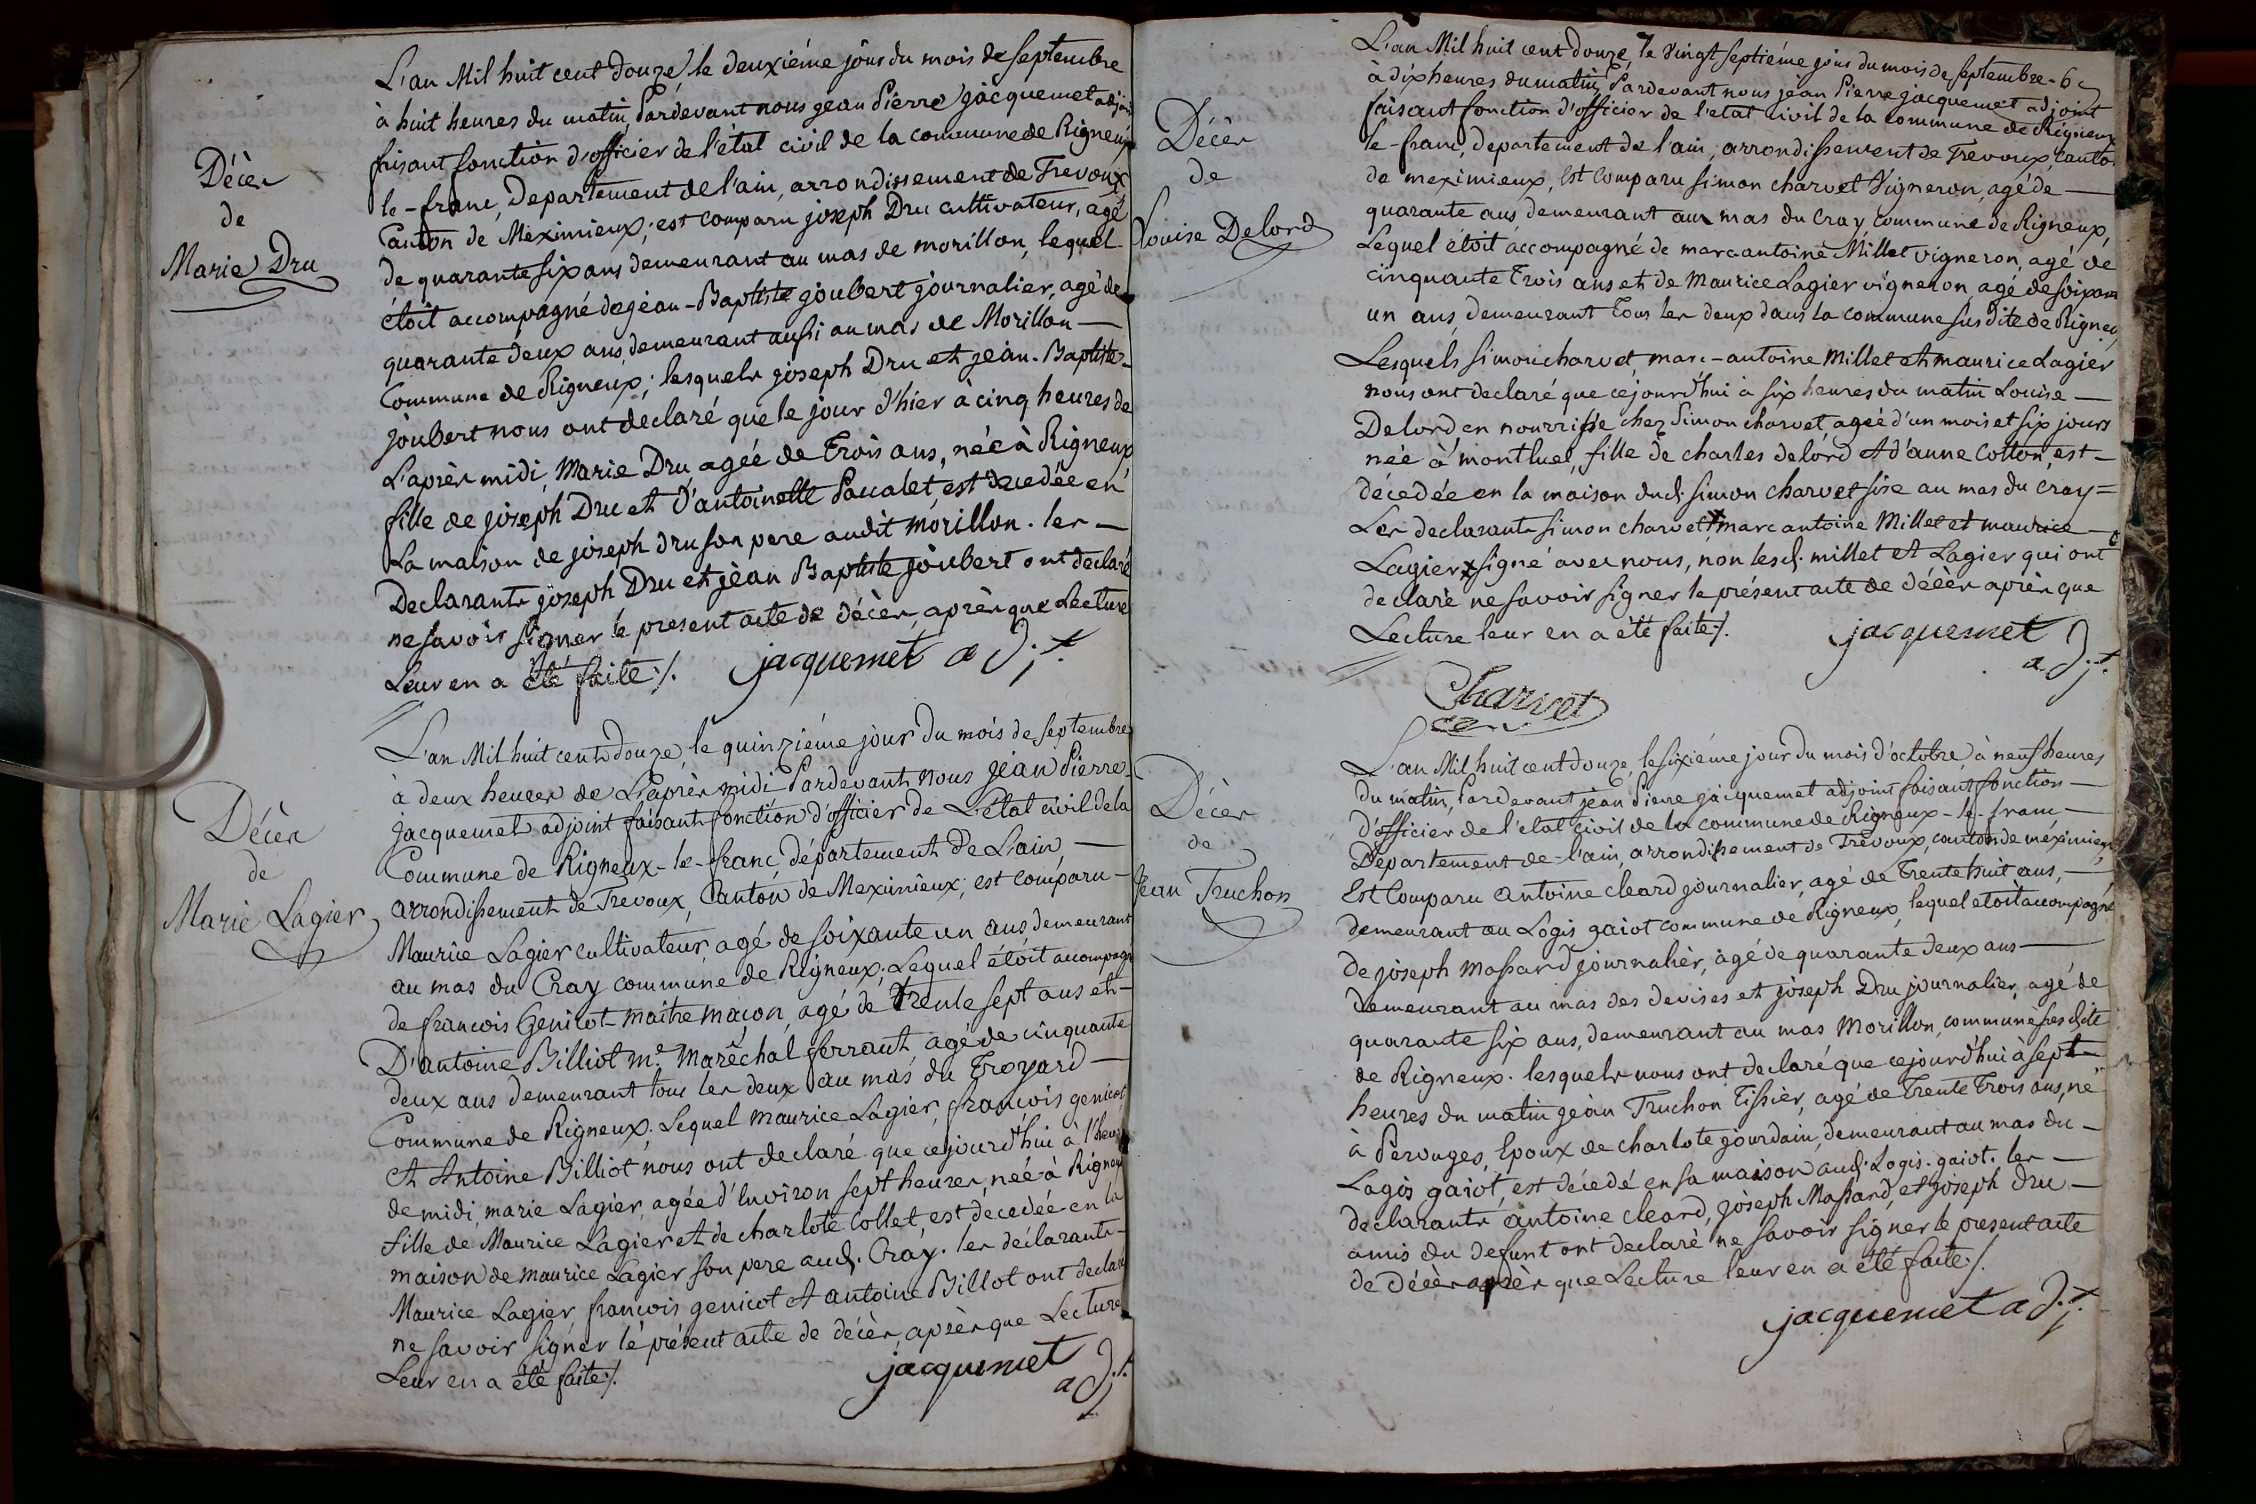 Décès
de
Marie Dru
L'an Mil huit cent douze, le deuxiéme jour du mois de septembre
à huit heures du matin Pardevant nous jean Pierre jacquemet adjoint
faisant fonction d'officier de l'état civil de la commune de Rigneux
le-franc, Departement de l'ain, arrondissement de Trevoux
Canton de Meximieux; est comparu joseph Dru cultivateur, agé
de quarante six ans demeurant au mas de morillon, lequel
étoit accompagné de jean-Baptiste joubert journalier, agé de
quarante deux ans demeurant aussi au mas de Morillon
Commune de Rigneux; lesquels joseph Dru et jean-Baptiste
joubert nous ont declaré que le jour d'hier à cinq heures de
L'après midi, Marie Dru agée de Trois ans, née à Rigneux
fille de joseph Dru et d'antoinette Paucalet, est decedée en
La maison de joseph dru son pere audit morillon. les
Declarants joseph Dru et jean Baptiste joubert ont declaré
ne savoir signer le present acte de décès, après que Lecture
Leur en a été faite ./. jacquemet adjt.
Décès
de
Marie Lagier
L'an Mil huit cent douze, le quinziéme jour du mois de septembre
à deux heures de L'après midi Pardevant nous jean Pierre
jacquemet adjoint faisant fonction d'officier de L'état civil de la
Commune de Rigneux-le-franc, département de L'ain
arrondissement de Trevoux, Canton de Meximieux; est comparu
Maurice Lagier cultivateur, agé de soixante un ans demeurant
au mas du Cray commune de Rigneux; Lequel étoit accompagné
de francois Genicot maitre maçon, agé de Trente sept ans et
D'antoine Billiot me. Maréchal ferrant agé de cinquante
deux ans demeurant tous les deux au mas du Troyard
Commune de Rigneux. Lequel maurice Lagier, francois genicot
et Antoine Billiot nous ont declaré que cejourd'hui à l'heure
de midi, marie Lagier, agée d'Environ sept heures, née à Rigneux
fille de Maurice Lagier et de charlote Collet, est decedée en la
maison de maurice Lagier son pere aud. Cray. les déclarants
Maurice Lagier, francois genicot et antoine Billot ont declaré
ne savoir signer le présent acte de décès, après que Lecture
Leur en a été faite ./. jacquemet
adjt.
Décès
de
Louise Delord
L'an Mil huit cent douze, le Vingt septiéme jour du mois de septembre - 6
à dix heures du matin Pardevant nous jean Pierre jacquemet adjoint
faisant fonction d'officier de l'etat civil de la commune de Rigneux
le-franc, departement de l'ain, arrondissement de Trevoux, canton
de meximieux, est comparu simon charvet Vigneron, agé de
quarante ans demeurant au mas du cray commune de Rigneux,
Lequel étoit accompagné de marc antoine Millet vigneron, agé de
cinquante Trois ans et de Maurice Lagier vigneron agé de soixante
un ans demeurant Tous les deux dans la commune susdite de Rigneux
Lesquels simon charvet, marc-antoine Millet et maurice Lagier
nous ont declaré que cejourd'hui à six heures du matin Louise
Delord en nourrisse chez Simon charvet, ageé d'un mois et six jours
née à montluel, fille de charles delord et d'anne Cotton, est
décedée en la maison dud. simon charvet sise au mas du cray=
Les declarants simon charvet, marc antoine Millet et maurice
Lagier signé avec nous, non lesd. millet et Lagier qui ont
declaré ne savoir signer le présent acte de décès après que
Lecture leur en a été faite ./. jacquemet
adjt.
Charvet
Décès
de
Jean Truchon
L'an Mil huit cent douze, le sixiéme jour du mois d'octobre, à neuf heures
du matin, Pardevant jean Pierre jacquemet adjoint faisant fonction
d'officier de l'etat civil de la commune de Rigneux-le-franc,
Departement de-l'ain, arrondissement de Trevoux, canton de meximieux
Est Comparu antoine cleard journalier, agé de Trente huit ans,
demeurant au Logis gaiot commune de Rigneux, lequel etoit accompagné
de joseph Massard journalier, agé de quarante deux ans
demeurant au mas des devises et joseph Dru journalier, agé de
quarante six ans, demeurant au mas Morillon, commune susdite
de Rigneux. lesquels nous ont declaré que cejourd'hui à sept
heures du matin jean Truchon Tissier, agé de Trente Trois ans, né
à Perouges, Epoux de charlote jourdain, demeurant au mas du
Logis gaiot, est décedé en sa maison aud. Logis. gaiot. les
declarants antoine cleard, joseph Massard, et joseph dru
amis du defunt ont declaré ne savoir signer le present acte
de décès après que Lecture leur en a été faite ./.
jacquemet adjt.